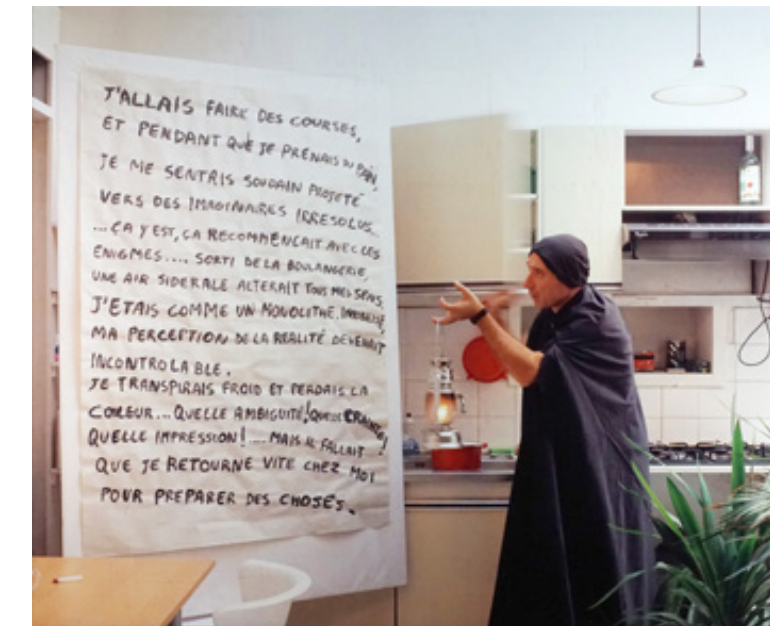 J'ALLAIS FAIRE DES COURSES,
ET PENDANT QUE JE PRENAIS DU PAIN,
JE ME SENTRIS SOUDAIN PROJETÉ
VERS DES IMAGINAIRES IRRESOLUS...
...ÇA Y EST, ÇA RECOMMENCAIT AVEC LES
ENIGMES.... SORTI DE LA BOULANGERIE,
UNE AIR SIDERALE ALTERAIT TOUS MES SENS,
J'ETAIS COMME UN MONOLITHE,
MA PERCEPTION DE LA REALITÉ DEVENAIT
INCONTROLABLE.
JE TRANSPIRAIS FROID ET PERDAIS LA
COULEUR... QUELLE AMBIGUITÉ! QUELLE CRAINTE!
QUELLE IMPRESSION! .... MAIS IL FALLAIT
QUE JE RETOURNE VITE CHEZ MOI
POUR PREPARER DES CHOSES.